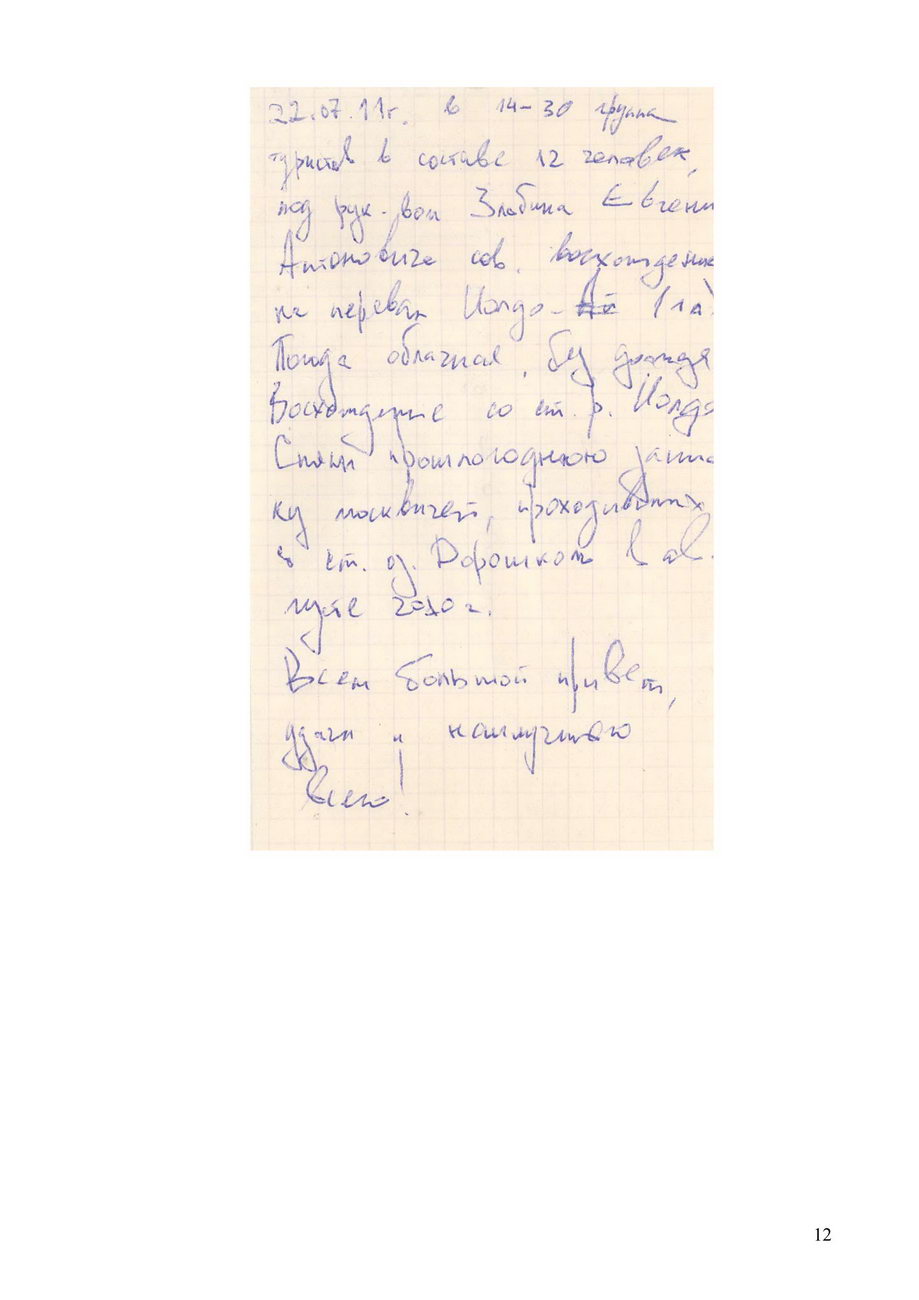 22.07.11г. в 14-30 группа
туристов в составе 12 человек,
под рук-вом Злобина Евгени
Антоновича сов. восхождение
на перевал Иолдо- (1А).
Погода облачная, без дождя
Восхождение со ст. р. Иолдо
Сняли прошлогоднюю запис
ку москвичей, проходивших
ст. оз. Дорошком в ав
густе 2010 г.
Всем большой привет,
удачи и наилучшего
всего!
12